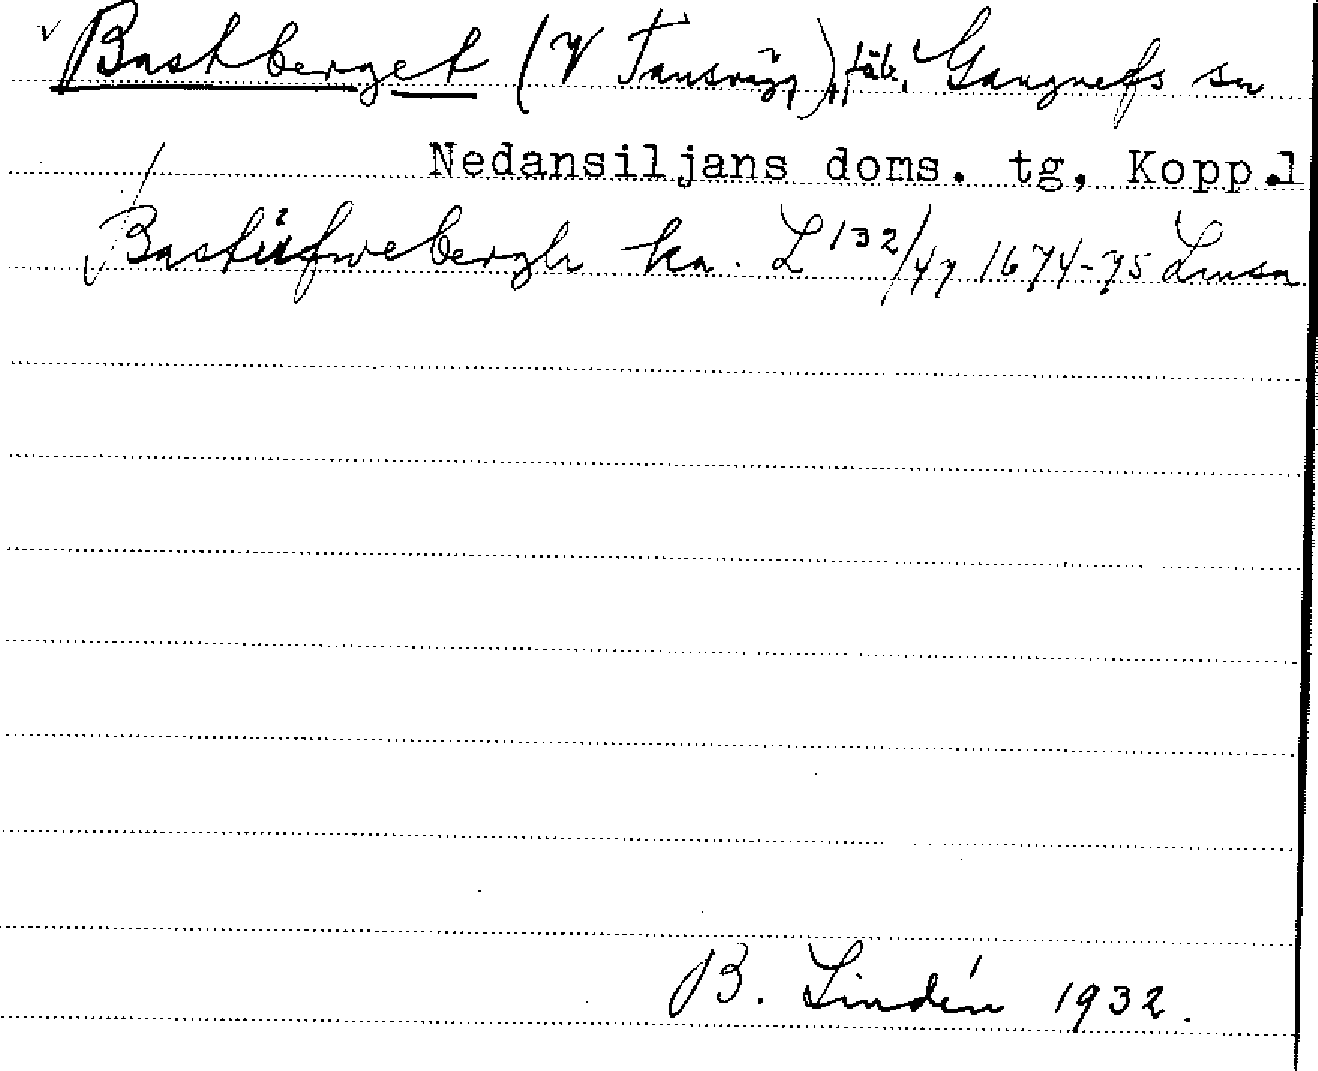 Bastberget (V Tansvägg), fäb., Gagnefs sn
Nedansiljans doms. tg, Kopp.l
Bastufwebergh ka. L 132/47 1674-75
B. Lindén 1932.